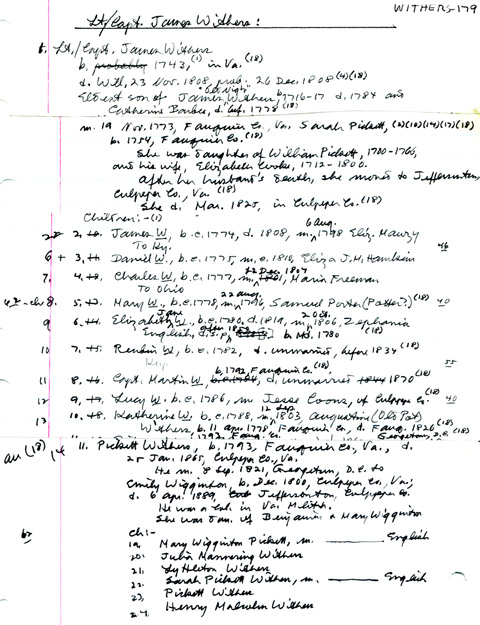 WITHERS-179
Lt/Capt. James Withers:
1. Lt./Capt. James Withers
b. probably 1743,(1) in Va.(18)
d. Will, 23 Nov. 1808, prob. 26 Dec. 1808 (4)(18)
Eldest son of James Withers, b. 1716-17 d. 1784 and
Catherine Barbee, d. 1778 (18)
m. 19 Nov. 1773, Fauquier Co., Va. Sarah Pickett, (2)(10)(14)(17)(18)
b. 1754, Fauquier Co. (18)
She was daughter of William Pickett, 1700-1766,
and his wife, Elizabeth Cooke, 1712-1800.
After her husband's death, she moved to Jeffersonton,
Culpeper Co., Va. (18)
She d. Mar. 1825, in Culpeper Co. (18)
Children:-(1)
2. James W., b.c. 1774, d. 1808, m. 6 Aug. 1798 Eliz. Maury
To Ky.
6 + 3. Daniel W., b.c. 1775, m.c. 1810, Eliza J.M. 46
7. 4. Charles W., b.c. 1777, m. 22 Dec. 1807 Maria Freeman
To Ohio
8. 5. Mary W., b.c. 1778, m. 22 1796, Samuel Porter (Potter?) (18) 40
9 6. Elizabeth W., b.c. 1780, d. 1819, m. 2 Oct. 1806, Zephania
English, d.s.p. b. Md. 1780 (18)
10 7. Reuben W., b.c. 1782, d. unmarried, before 1834 (18)
11 8. Capt. Martin W., b. 1792, Fauquier Co. (18) d. unmarried 1870 (18) 55
12 9. Lucy W., b.c. 1786, m. Jesse Coons, of Culpeper Co. (18) 40
13 10. Katherine W., b.c. 1788, m. 12 Sep. 1803, Augustine (Old Pat)
Withers, b. 11 Apr. 1778 Fauquier Co., d. Fauq. 1826 (18)
au (18) 14 11. Pickett Withers, b. 1793, Fauquier Co., Va., d.
25 Jan. 1865, Culpeper Co., Va.
He m. 8 Sep. 1821, Georgetown, D.C. to
Emily Wigginton b. Dec. 1800, Culpeper Co., Va;
d. 6 Apr. 1889, Jeffersonton, Culpeper Co.
He was a Col. in Va. Militia.
She was dau. of Benjamin & Mary Wigginton
Ch:-
19. Mary Wigginton Pickett, m. English
20. Julia Mannering Withers
21. Withers
22. Sarah Pickett Withers, m. English
23. Pickett Withers
24. Henry Malcolm Withers